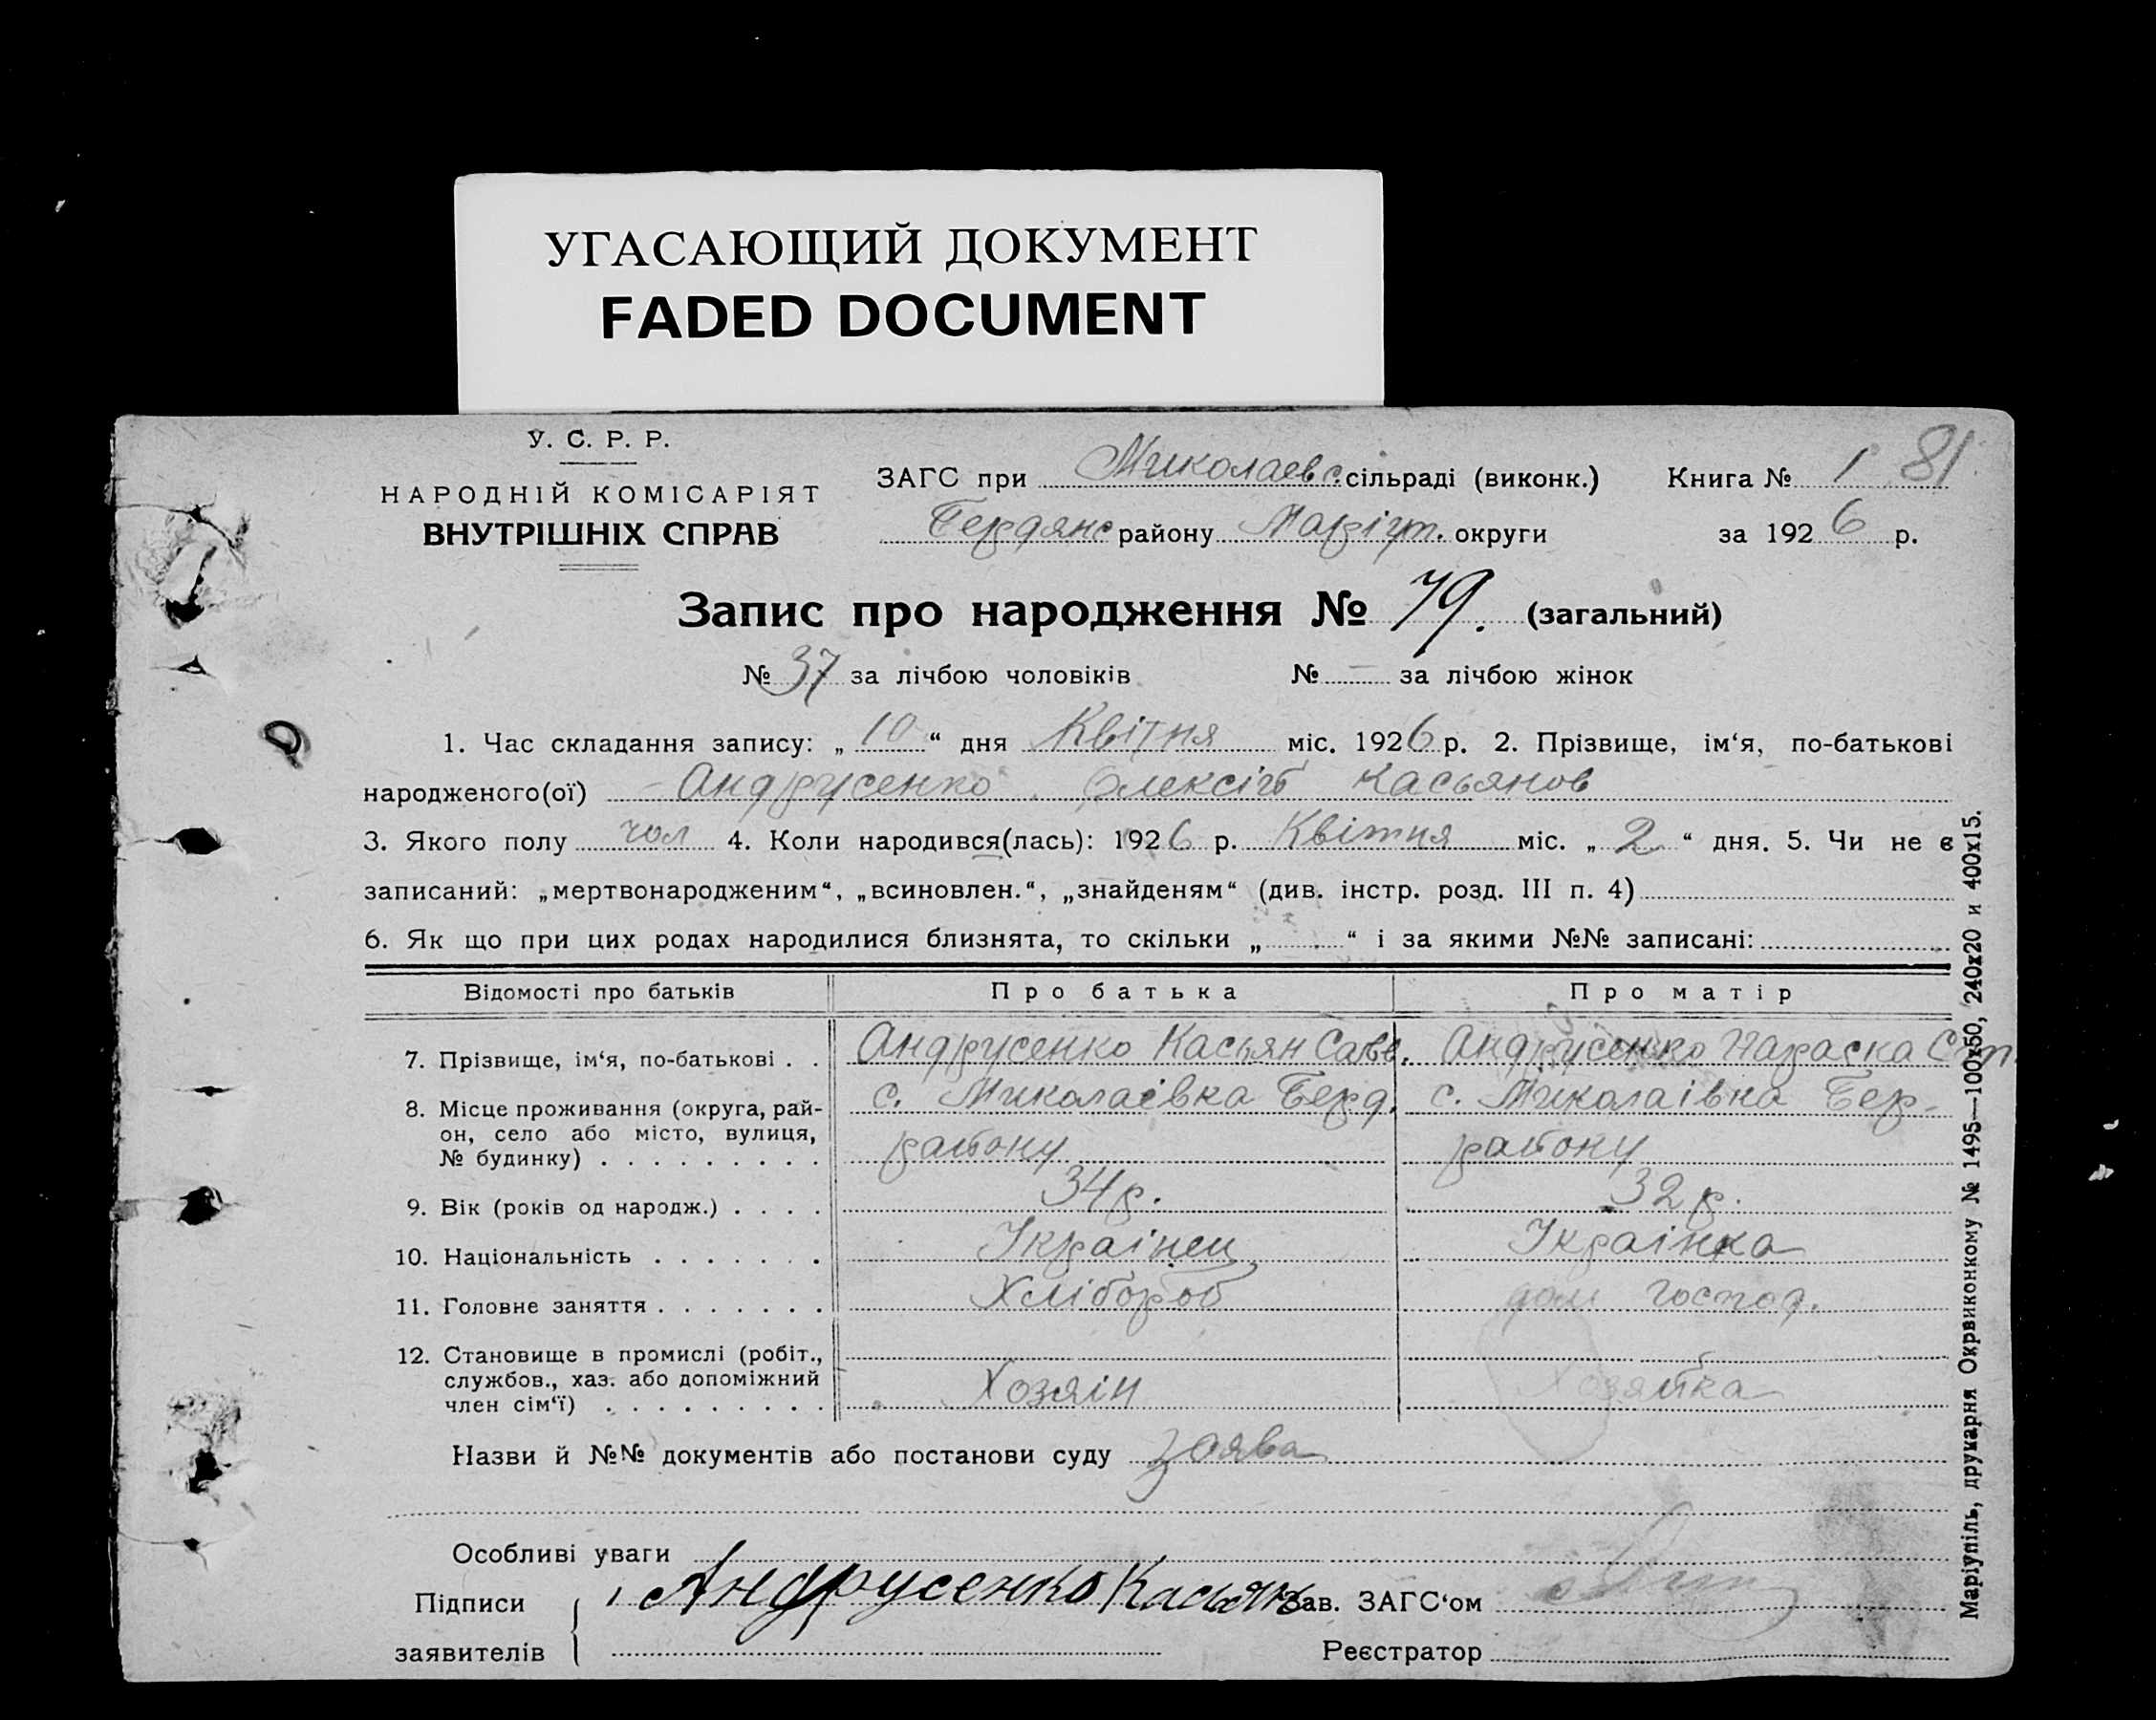 УГАСАЮЩИЙ ДОКУМЕНТ
FADED DOCUMENT
У. С. Р. Р.
НАРОДНІЙ КОМІСАРІЯТ
ВНУТРІШНІХ СПРАВ
ЗАГС при Миколаевс. сільраді (виконк.) Книга № 1 81
Бердянс району Маріуп. округи за 1926 р.
Запис про народження № 79. (загальний)
№ 37 за лічбою чоловіків № — за лічбою жінок
1. Час складання запису: „10“ дня Квітня міс. 1926 р. 2. Прізвище, ім‘я, по-батькові
народженого(ої) Андрусенко Олексій Касьянов
3. Якого полу чол 4. Коли народився(лась): 1926 р. Квітня міс. „2“ дня. 5. Чи не є
записаний: „мертвонародженим“, „всиновлен.“, „знайденям“ (див. інстр. розд. III п. 4)
6. Як що при цих родах народилися близнята, то скільки „ “ і за якими №№ записані:
Відомості про батьків Про батька Про матір
7. Прізвище, ім‘я, по-батькові . . Андрусенко Касьян Савв. Андрусенко Параска
8. Місце проживання (округа, рай- с. Миколаївка Берд. с. Миколаівка Бер-
он, село або місто, вулиця,
№ будинку) . . . . . . . . . району району
9. Вік (років од народж.) . . . . 34 р. 32 р.
10. Національність . . . . . . . Украінец Украінка
11. Головне заняття . . . . . . . Хлібороб дом господ.
12. Становище в промислі (робіт.,
службов., хаз. або допоміжний
член сім‘ї) . . . . . . . . . Хозяін Хозяйка
Назви й №№ документів або постанови суду заява
Особливі уваги
Підписи Андрусенко Касьян Зав. ЗАГС‘ом
заявителів Реєстратор
Маріупіль, друкарня Окрвиконкому № 1495—100х50, 240х20 и 400х15.